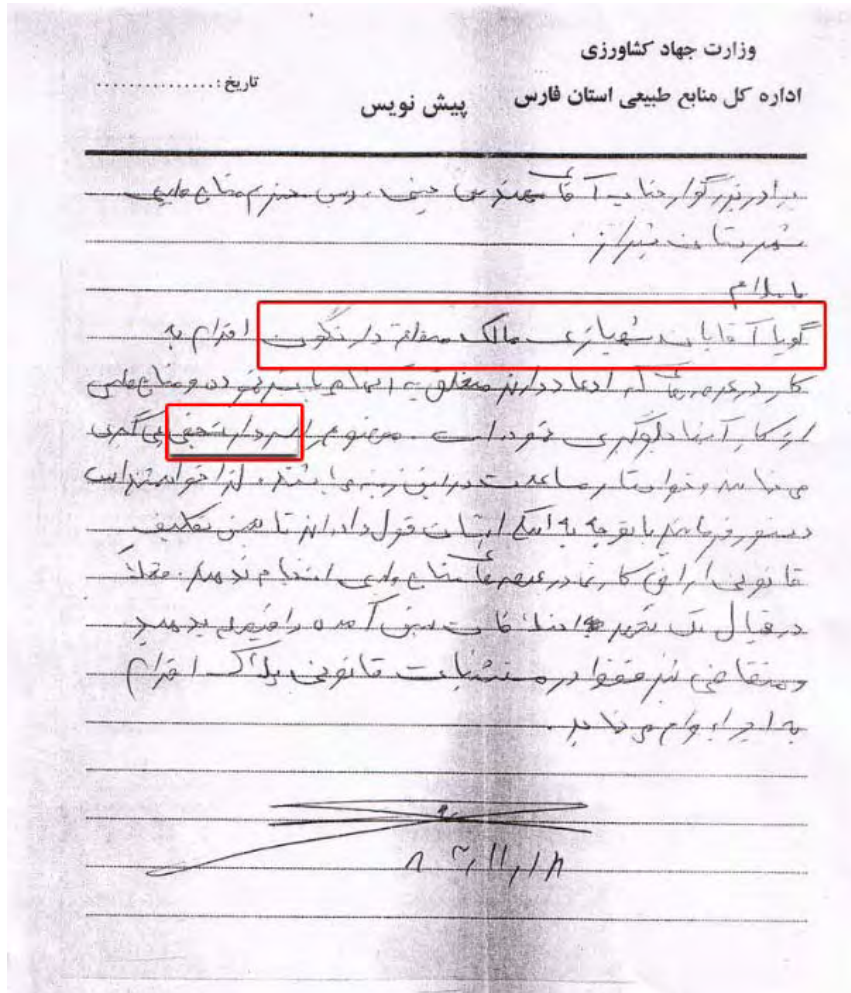 وزارت جهاد کشاورزی
اداره کل منابع طبیعی استان فارس
پیش نویس
تاریخ:................
برادر بزرگوار جناب آقای مهندس رئیس محترم منابع طبیعی
شهرستان شیراز
با سلام
گویا آقایان شهبازی مالک منطقه دارنگون اقدام به
کار در عرصه هائی که ادعا دارند متعلق به آنها می باشد نموده و منابع طبیعی
از کار آنها جلوگیری نموده است. موضوع را سردار نجفی پی گیری
می نمایند و خواستار مساعدت در این زمینه می باشند. لذا خواهشمند است
دستور فرمایید با توجه به اینکه ایشان قول داده اند تا تعیین تکلیف
قانونی اراضی کاری در عرصه های منابع ملی انجام ندهند. عملاً
در قبال یک تعهد اختلافات پیش آمده را فیصله بدهید
و متقاضی نیز فقط در مستثنیات قانونی پلاک اقدام
به اجراء نمایند.
۸۳/۱۱/۱۸